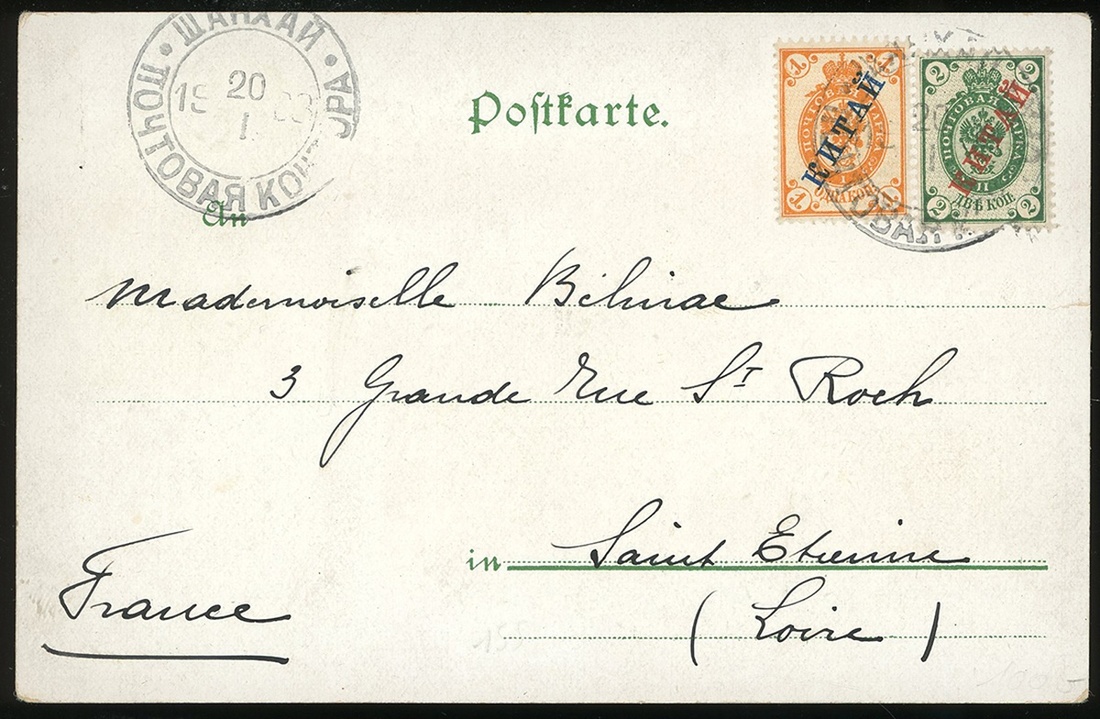 ШАНХАЙ
ПОЧТОВАЯ КОНТОРА
20
I
Postkarte.
1 1
ПОЧТОВАЯ МАРКА
КИТАЙ
1 1
2 2
ПОЧТОВАЯ МАРКА
КИТАЙ
ДВѢ КОП.
2 2
An
Mademoiselle
3 Grande Rue St Roch
in Saint Etienne
(Loire)
France